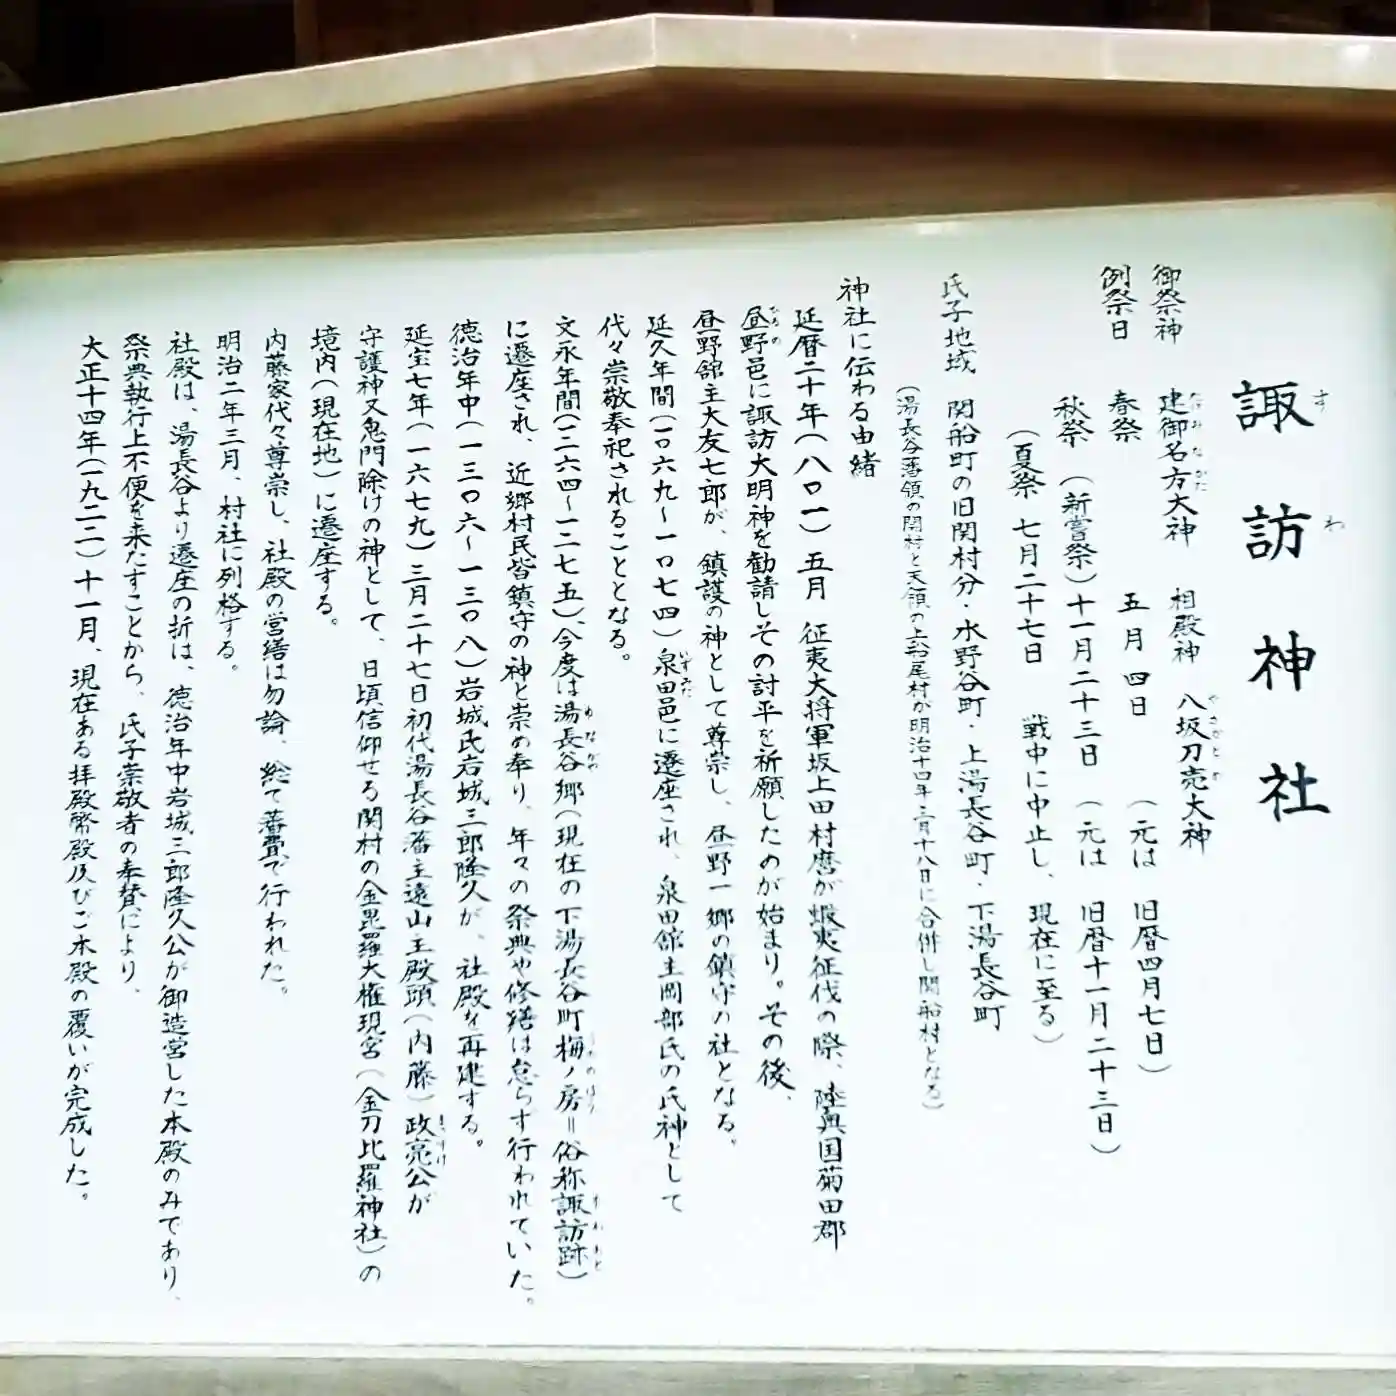 諏訪神社
御祭神 建御名方大神 相殿神 八坂刀売大神
例祭日 春祭 五月四日 (元は 旧暦四月七日)
秋祭 (新嘗祭)十一月二十三日 (元は 旧暦十一月二十三日)
(夏祭 七月二十七日 戦中に中止し、現在に至る)
氏子地域 関船町の旧関村分・水野谷町・上湯長谷町・下湯長谷町
(湯長谷藩領の関村と天領の上船尾村が明治十四年三月十八日に合併し関船村となる)
神社に伝わる由緒
延暦二十年(八〇一)五月 征夷大将軍坂上田村麿が蝦夷征伐の際、陸奥国菊田郡
昼野邑に諏訪大明神を勧請しその討平を祈願したのが始まり。その後、
昼野舘主大友七郎が、鎮護の神として尊崇し、昼野一郷の鎮守の社となる。
延久年間(一〇六九~一〇七四)泉田邑に遷座され、泉田舘主岡部氏の氏神として
代々崇敬奉祀されることとなる。
文永年間(一二六四~一二七五)、今度は湯長谷郷(現在の下湯長谷町梅ノ房=俗称諏訪跡)
に遷座され、近郷村民皆鎮守の神と崇め奉り、年々の祭典や修繕は怠らず行われていた。
徳治年中(一三〇六~一三〇八)岩城氏岩城三郎隆久が、社殿を再建する。
延宝七年(一六七九)三月二十七日初代湯長谷藩主遠山主殿頭(内藤)政亮公が
守護神又鬼門除けの神として、日頃信仰せる関村の金毘羅大権現宮(金刀比羅神社)の
境内(現在地)に遷座する。
内藤家代々尊崇し、社殿の営繕は勿論、総て藩費で行われた。
明治二年三月、村社に列格する。
社殿は、湯長谷より遷座の折は、徳治年中岩城三郎隆久公が御造営した本殿のみであり、
祭典執行上不便を来たすことから、氏子崇敬者の奉賛により、
大正十四年(一九二二)十一月、現在ある拝殿幣殿及びご本殿の覆いが完成した。